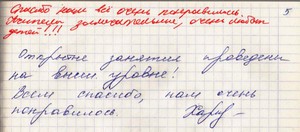 Просто нам всё очень понравилось. 5
Логопеды замечательные, очень любят
детей!!!
Открытые занятия проведены
на высшем уровне!
Всем спасибо, нам очень
понравилось.